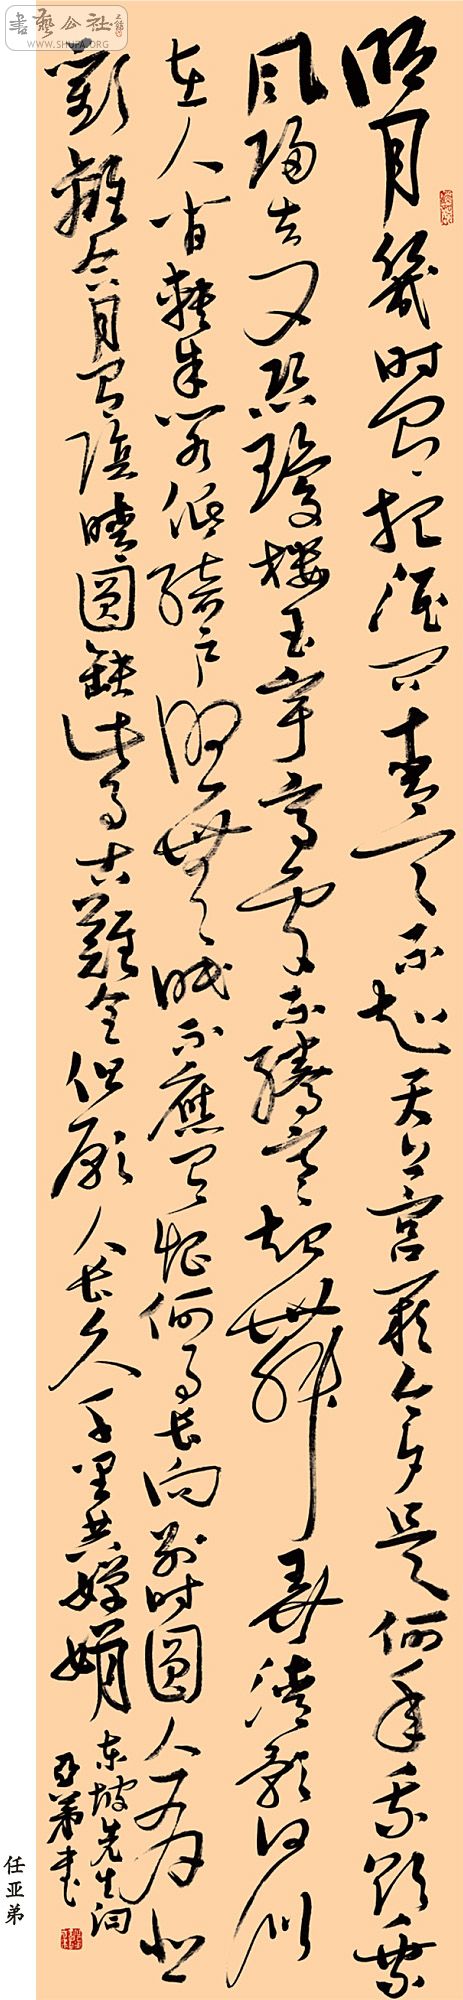 書藝公社
WWW.SHUFA.ORG
明月幾时有把酒问青天不知天上宫阙今夕是何年我欲乘
风归去又恐瓊楼玉宇高处不勝寒起舞弄清影何似
在人间轉朱阁低绮户照無眠不應有恨何事长向别时圆人有悲
歡離合月有陰晴圆缺此事古難全但願人长久千里共嬋娟
东坡先生词
亞弟书
任亚弟